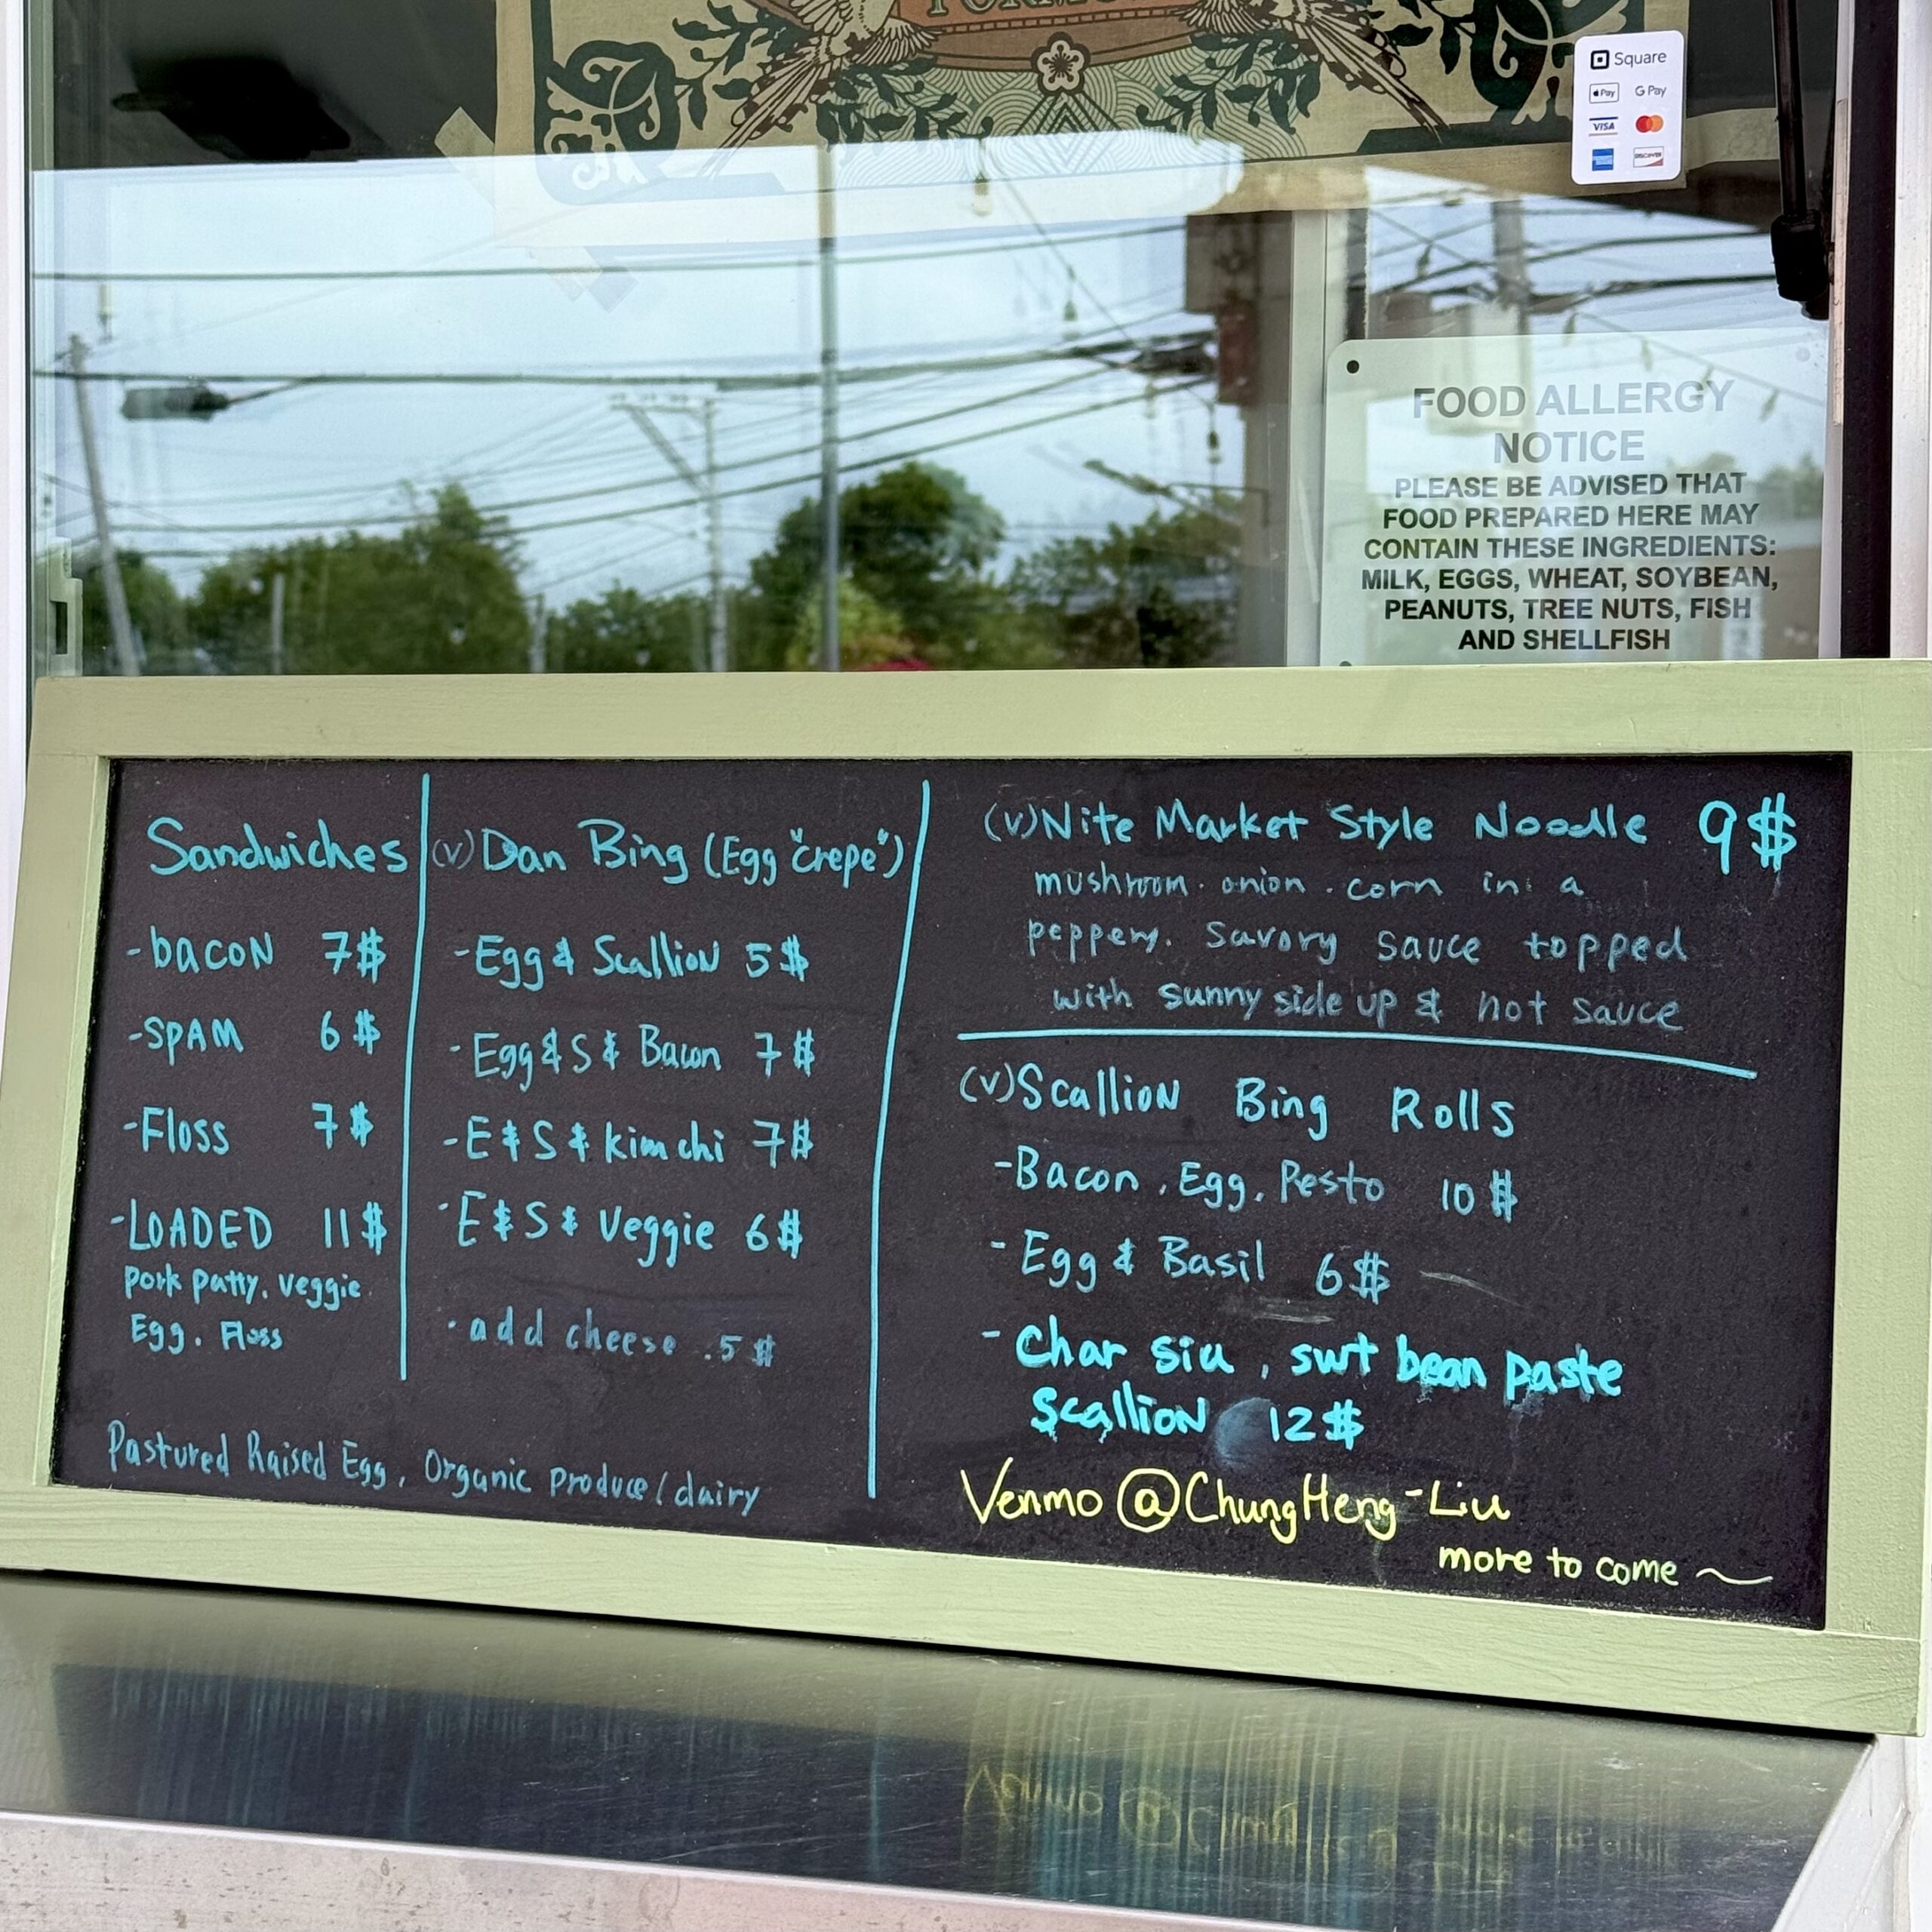 Square
Pay G Pay
VISA
DISCOVER
FOOD ALLERGY
NOTICE
PLEASE BE ADVISED THAT
FOOD PREPARED HERE MAY
CONTAIN THESE INGREDIENTS:
MILK, EGGS, WHEAT, SOYBEAN,
PEANUTS, TREE NUTS, FISH
AND SHELLFISH
Sandwiches
-bacon 7$
-SPAM 6$
-Floss 7$
-LOADED 11$
pork patty. veggie.
Egg. Floss
(v) Dan Bing (Egg "crepe")
-Egg & Scallion 5$
-Egg & S & Bacon 7$
-E & S & kimchi 7$
-E & S & Veggie 6$
-add cheese .5$
Pastured Raised Egg, Organic produce/dairy
(v) Nite Market Style Noodle 9$
mushroom. onion. corn in a
peppery. savory sauce topped
with sunny side up & hot sauce
(v) Scallion Bing Rolls
-Bacon, Egg, Pesto 10$
-Egg & Basil 6$
-Char siu, swt bean paste
scallion 12$
Venmo @ChungHeng-Liu
more to come ~